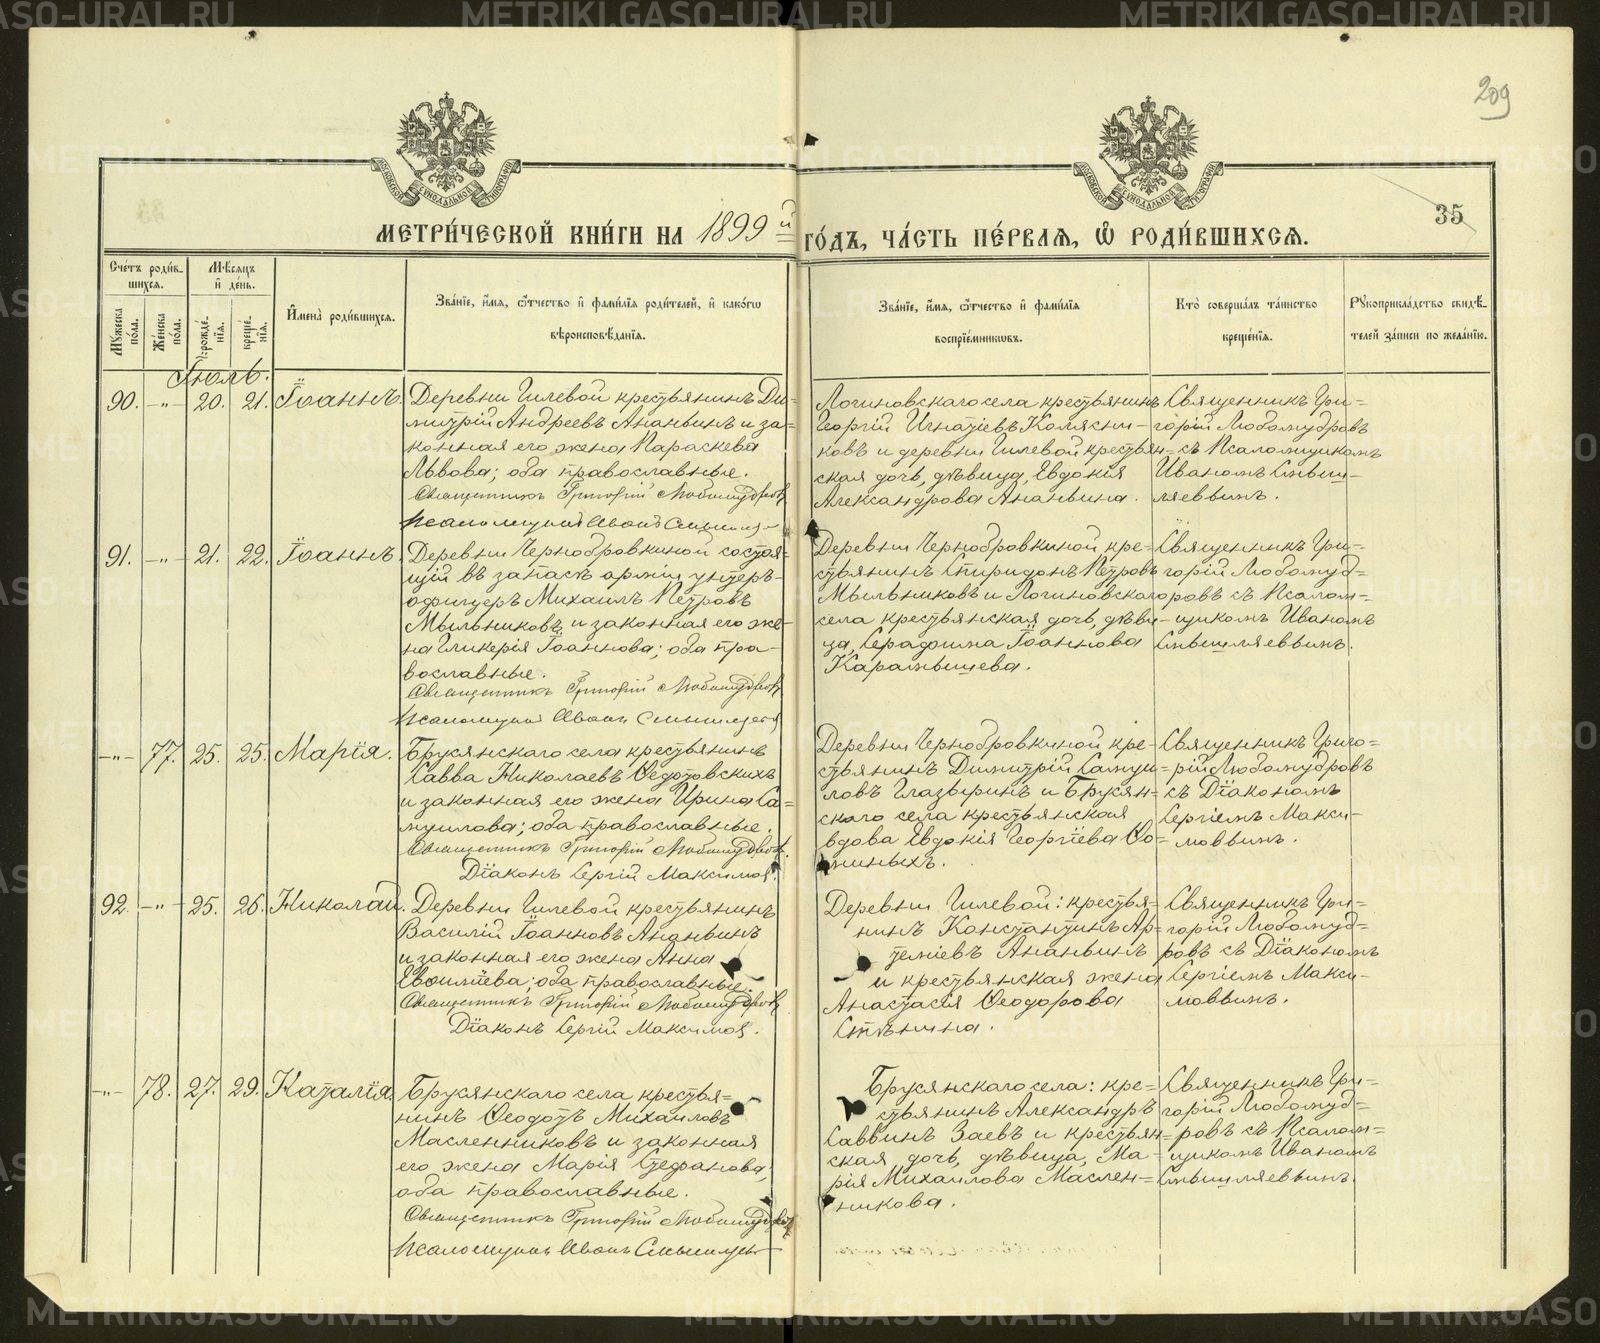 209
35
МЕТРИ́ЧЕСКОЙ КНИ́ГИ НА 1899й ГО́ДЪ, ЧА́СТЬ ПЕ́РВАЯ, Ѡ҆ РОДИ́ВШИХСЯ.
Сче́тъ роди́в-
шихся.
Му́жеска по́ла.
Же́нска по́ла.
Мѣ́сяцъ
и҆ де́нь.
рожде́нїя.
креще́нїя.
И҆мена̀ роди́вшихся.
Зва́нїе, и҆́мя, ѻ҆́тчество и҆ фами́лїя роди́телей, и҆ како́гѡ
вѣроисповѣ́данїя.
Зва́нїе, и҆́мя, ѻ҆́тчество и҆ фами́лїя
воспрїе́мникѡвъ.
Кто̀ соверша́лъ та́инство
креще́нїя.
Рꙋкоприкла́дство свидѣ́-
телей за́писи по жела́нїю.
Іюль.
90. -"- 20. 21. Іоаннъ.
Деревни Гилевой крестьянинъ Ди-
митрій Андреевъ Ананьинъ и за-
конная его жена Параскева
Львова; оба православные.
Священникъ Григорій Любомудровъ
Псаломщикъ Иванъ Смышляе
Логиновскаго села крестьянинъ
Георгій Игнатіевъ Колясни-
ковъ и деревни Гилевой крестьян-
ская дочь, дѣвица, Евдокія
Александрова Ананьина.
Священникъ Гри-
горій Любомудровъ
съ Псаломщикомъ
Иваномъ Смыш-
ляевымъ.
91. -"- 21. 22. Іоаннъ.
Деревни Чернобровкиной состоя-
щій въ запасѣ арміи унтеръ-
офицеръ Михаилъ Петровъ
Мыльниковъ и законная его же-
на Гликерія Іоаннова; оба пра-
вославные.
Священникъ Григорій Любомудровъ
Псаломщикъ Иванъ Смышляевъ
Деревни Чернобровкиной кре-
стьянинъ Спиридонъ Петровъ
Мыльниковъ и Логиновскаго
села крестьянская дочь, дѣви-
ца, Серафима Іоаннова
Карамышева.
Священникъ Гри-
горій Любомуд-
ровъ съ Псалом-
щикомъ Иваномъ
Смышляевымъ.
-"- 77. 25. 25. Марія.
Брусянскаго села крестьянинъ
Савва Николаевъ Ѳедотовскихъ
и законная его жена Ирина Са-
муилова; оба православные.
Священникъ Григорій Любомудровъ.
Діаконъ Сергій Максимовъ.
Деревни Чернобровкиной кре-
стьянинъ Димитрій Самуи-
ловъ Глазыринъ и Брусян-
скаго села крестьянская
вдова Евдокія Георгіева Ѳо-
миныхъ.
Священникъ Григо-
рій Любомудровъ
съ Діакономъ
Сергіемъ Макси-
мовымъ.
92. -"- 25. 26. Николай.
Деревни Гилевой крестьянинъ
Василій Іоанновъ Ананьинъ
и законная его жена Анна
оба православные.
Священникъ Григорій Любомудровъ
Діаконъ Сергій Максимовъ.
Деревни Гилевой: крестья-
нинъ Константинъ Ар-
теміевъ Ананьинъ
и крестьянская жена
Анастасія Ѳеодорова
Стѣнина.
Священникъ Гри-
горій Любомуд-
ровъ съ Діакономъ
Сергіемъ Макси-
мовымъ.
-"- 78. 27. 29. Наталія
Брусянскаго села, крестья-
нинъ Ѳеодотъ Михаиловъ
Масленниковъ и законная
его жена Марія Стефанова;
оба православные.
Священникъ Григорій Любомудровъ
Псаломщикъ Иванъ Смышляевъ
Брусянскаго села: кре-
стьянинъ Александръ
Саввинъ Заевъ и крестьян-
ская дочь, дѣвица, Ма-
рія Михаилова Маслен-
никова.
Священникъ Гри-
горій Любомуд-
ровъ съ Псалом-
щикомъ Иваномъ
Смышляевымъ.
METRIKI.GASO-URAL.RU